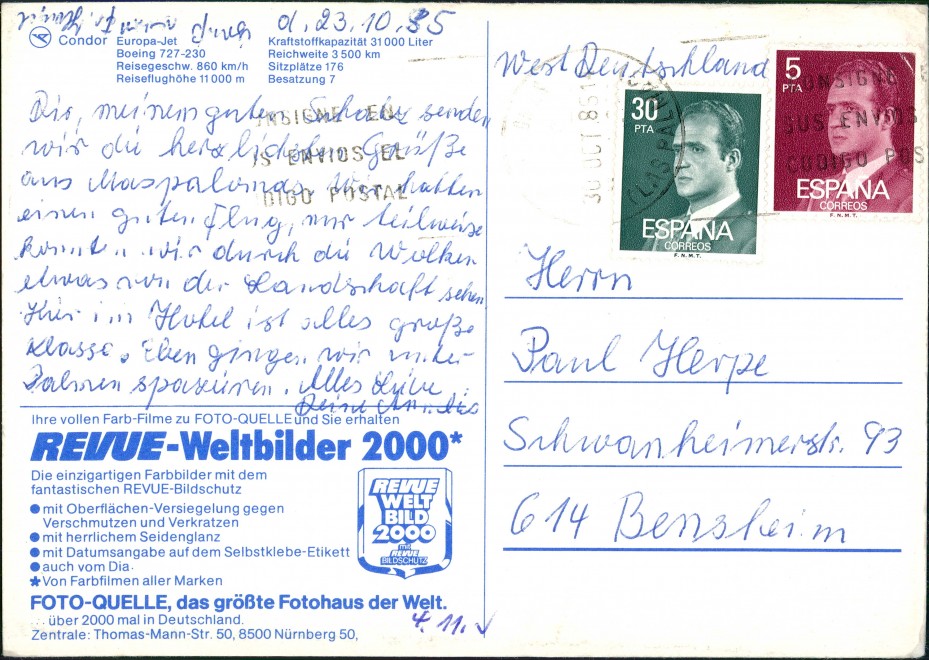 d. 23.10.85
Condor
Europa-Jet
Boeing 727-230
Reisegeschw. 860 km/h
Reiseflughöhe 11000 m
Kraftstoffkapazität 31 000 Liter
Reichweite 3 500 km
Sitzplätze 176
Besatzung 7
Dir, meinem guten Schatz senden
wir die herzlichsten Grüße
aus Maspalomas. Wir hatten
einen guten Flug, nur teilweise
konnten wir durch die Wolken
etwas von der Landschaft sehen
Hier im Hotel ist alles große
Klasse. Eben gingen wir unter
Palmen spazieren. Alles Liebe
Deine
Ihre vollen Farb-Filme zu FOTO-QUELLE und Sie erhalten
REVUE-Weltbilder 2000*
Die einzigartigen Farbbilder mit dem
fantastischen REVUE-Bildschutz
● mit Oberflächen-Versiegelung gegen
Verschmutzen und Verkratzen
● mit herrlichem Seidenglanz
● mit Datumsangabe auf dem Selbstklebe-Etikett
● auch vom Dia.
★ Von Farbfilmen aller Marken
REVUE
WELT
BILD
2000
mit
REVUE
BILDSCHUTZ
FOTO-QUELLE, das größte Fotohaus der Welt.
... über 2000 mal in Deutschland.
Zentrale: Thomas-Mann-Str. 50, 8500 Nürnberg 50,
4.11.
West Deutschland
30
PTA
ESPAÑA
CORREOS
F.N.M.T.
5
PTA
ESPAÑA
CORREOS
F.N.M.T.
30 OCT 85
NSIGNE EN
S ENVIOS EL
DIGO POSTAL
ONSIGNE
SUS ENVIOS
CODIGO POS
Herrn
Paul Herpe
Schwanheimerstr. 93
614 Bensheim